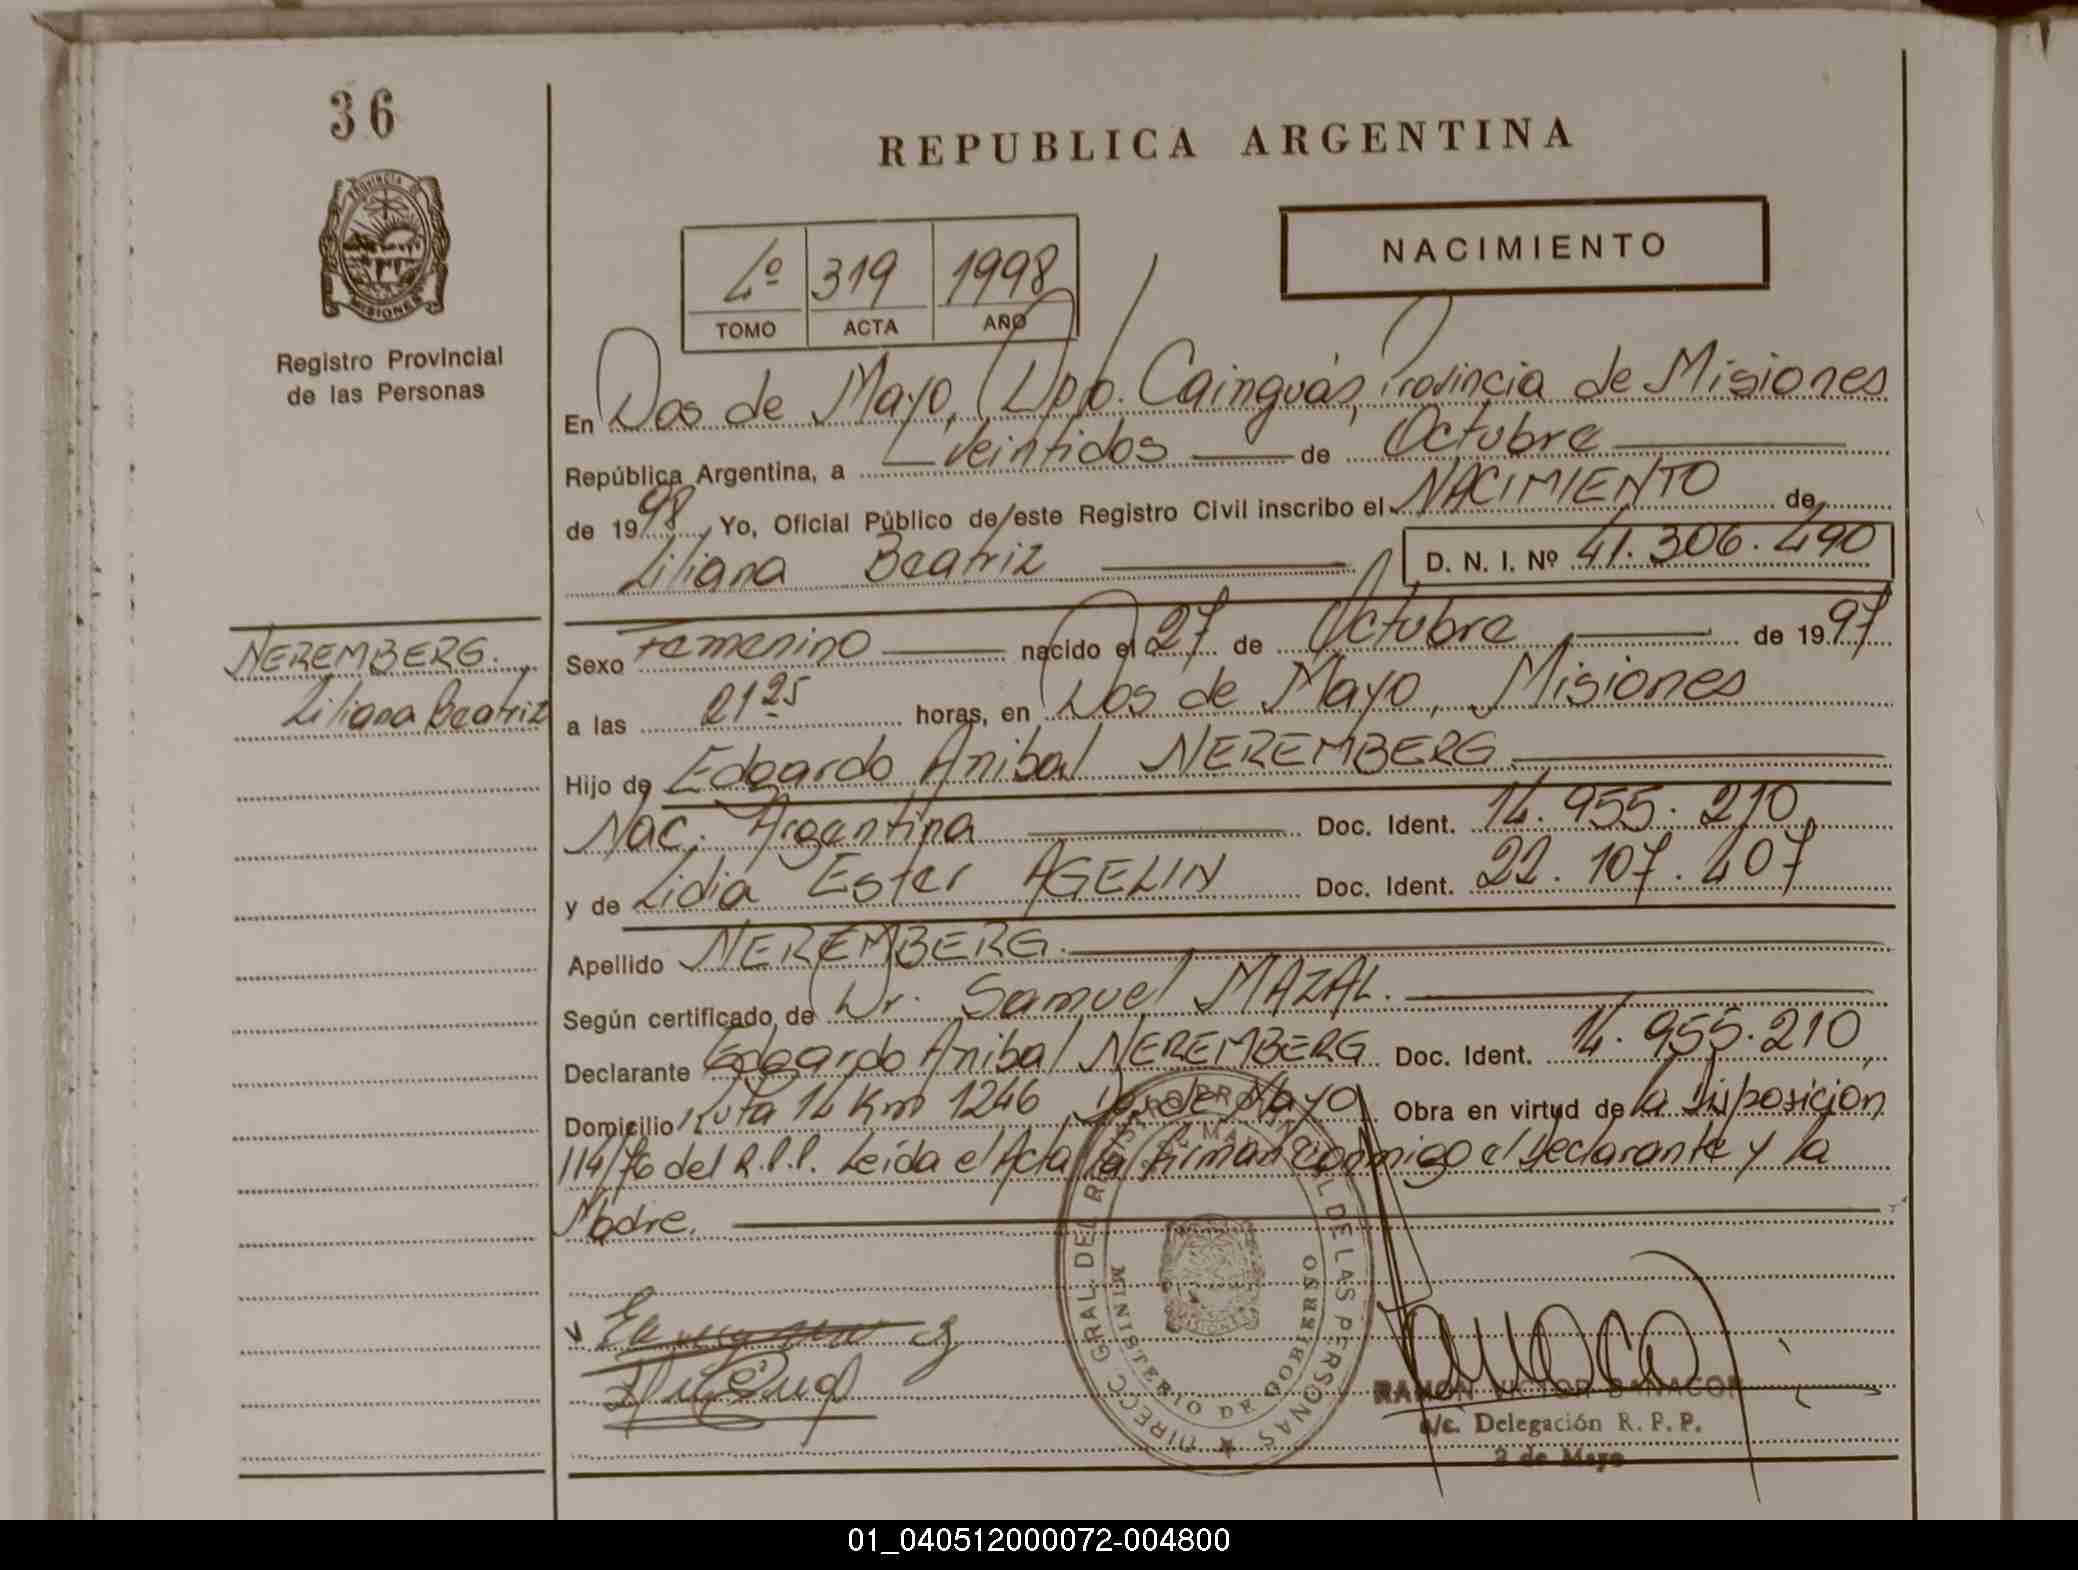 36
PROVINCIA DE
MISIONES
Registro Provincial
de las Personas
REPUBLICA ARGENTINA
NACIMIENTO
4º 319 1998
TOMO ACTA AÑO
En Dos de Mayo, Dpto. Cainguás, Provincia de Misiones
República Argentina, a veintidos de Octubre
de 1998, Yo, Oficial Público de este Registro Civil inscribo el NACIMIENTO de
Liliana Beatriz D. N. I. Nº 41.306.490
NEREMBERG.
Liliana Beatriz
Sexo Femenino nacido el 27 de Octubre de 1997
a las 21 25 horas, en Dos de Mayo, Misiones
Hijo de Edgardo Anibal NEREMBERG
Nac. Argentina Doc. Ident. 14.955.210
y de Lidia Ester AGELIN Doc. Ident. 22.107.407
Apellido NEREMBERG.
Según certificado de Dr. Samuel MAZAL.
Declarante Edgardo Anibal NEREMBERG Doc. Ident. 14.955.210,
Domicilio Ruta 14 Km 1246 Dos de Mayo Obra en virtud de la Disposición
114/76 del R.P.P. Leída el Acta la firman conmigo el Declarante y la
Madre.
DIRECC. GRAL. DEL REGISTRO PROVINCIAL DE LAS PERSONAS
MINISTERIO DE GOBIERNO
MISIONES
RAMON VICTOR BANACOR
a/c. Delegación R. P. P.
2 de Mayo
01_040512000072-004800